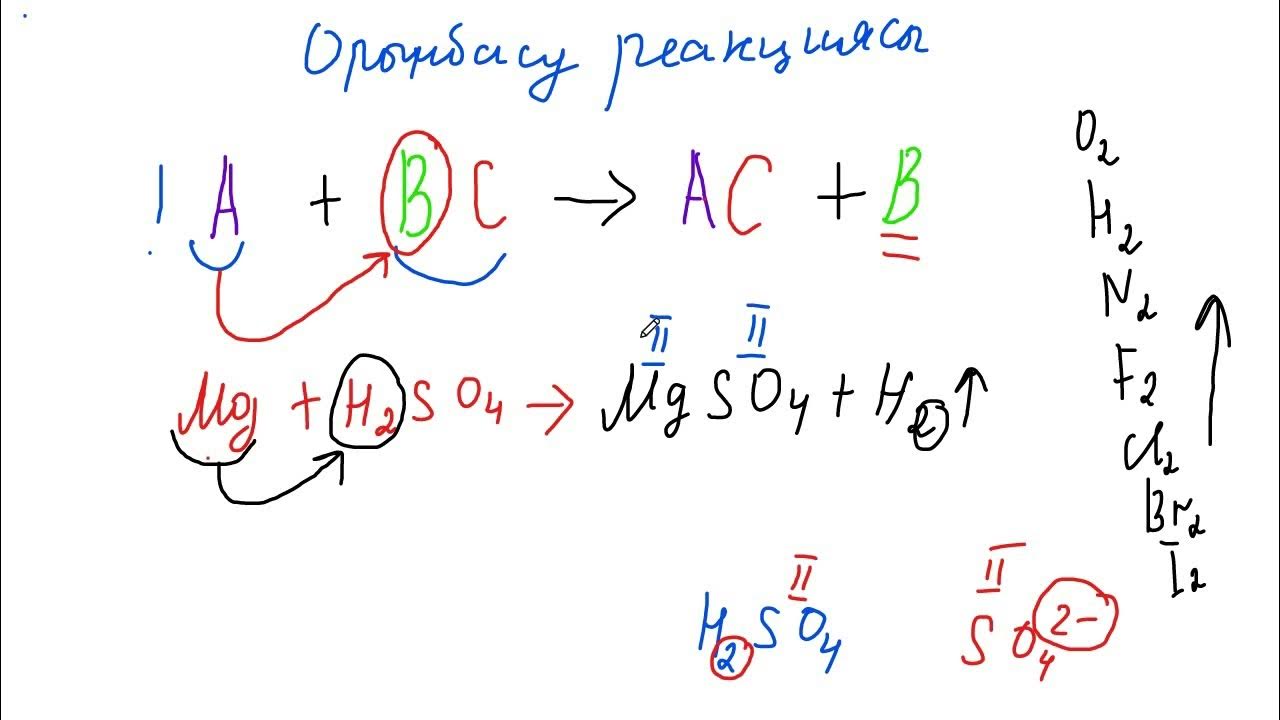 Орынбасу реакциясы
! A + BC → AC + B
II II
Mg + H₂SO₄ → MgSO₄ + H₂↑
O₂
H₂
N₂
F₂
Cl₂
Br₂
I₂
II
H₂SO₄
II
SO₄²⁻